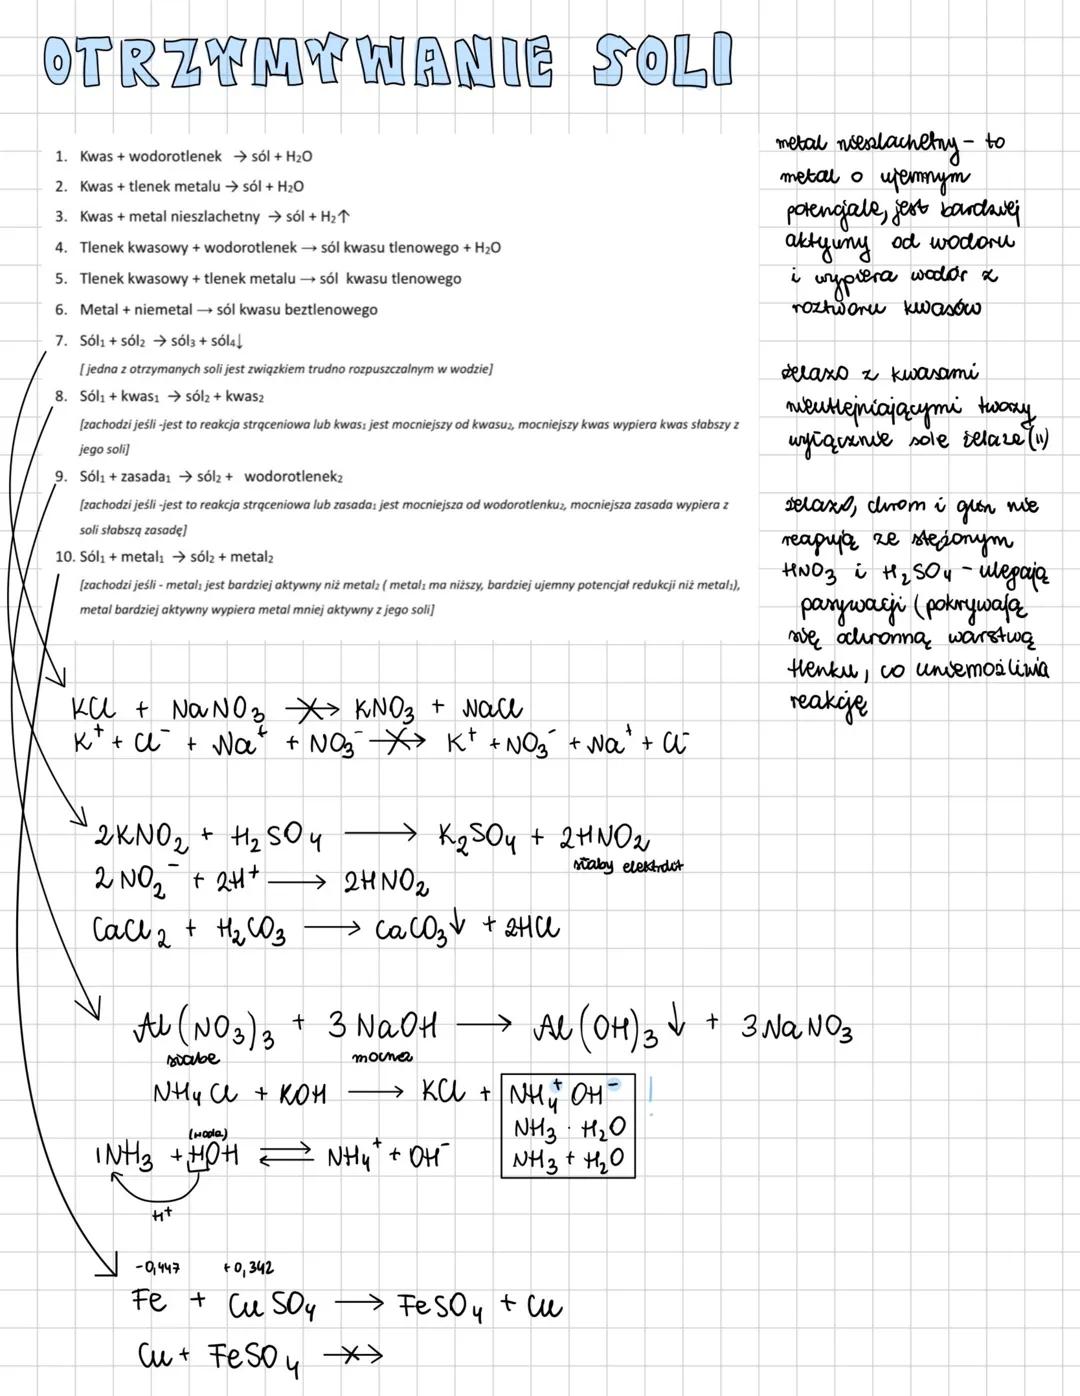 OTRZYMYWANIE SOLI
1. Kwas + wodorotlenek → sól + H₂O
2. Kwas + tlenek metalu → sól + H₂O
3. Kwas + metal nieszlachetny → sól + H₂↑
4. Tlenek kwasowy + wodorotlenek → sól kwasu tlenowego + H₂O
5. Tlenek kwasowy + tlenek metalu → sól kwasu tlenowego
6. Metal + niemetal → sól kwasu beztlenowego
7. Sól₁ + sól₂ → sól₃ + sól₄↓
[ jedna z otrzymanych soli jest związkiem trudno rozpuszczalnym w wodzie]
8. Sól₁ + kwas₁ → sól₂ + kwas₂
[zachodzi jeśli -jest to reakcja strąceniowa lub kwas₁ jest mocniejszy od kwasu₂, mocniejszy kwas wypiera kwas słabszy z
jego soli]
9. Sól₁ + zasada₁ → sól₂ + wodorotlenek₂
[zachodzi jeśli -jest to reakcja strąceniowa lub zasada₁ jest mocniejsza od wodorotlenku₂, mocniejsza zasada wypiera z
soli słabszą zasadę]
10. Sól₁ + metal₁ → sól₂ + metal₂
[zachodzi jeśli - metal₁ jest bardziej aktywny niż metal₂ ( metal₁ ma niższy, bardziej ujemny potencjał redukcji niż metal₁),
metal bardziej aktywny wypiera metal mniej aktywny z jego soli]
metal nieszlachetny - to
metal o ujemnym
potencjale, jest bardziej
aktywny od wodoru
i wypiera wodór z
roztworu kwasów
żelazo z kwasami
nieutleniającymi tworzy
wyłącznie sole żelaza (II)
żelazo, chrom i glin nie
reagują ze stężonym
HNO₃ i H₂SO₄ - ulegają
pasywacji (pokrywają
się ochronną warstwą
tlenku, co uniemożliwia
reakcję
KCl + NaNO₃ -X-> KNO₃ + NaCl
K⁺ + Cl⁻ + Na⁺ + NO₃⁻ -X-> K⁺ + NO₃⁻ + Na⁺ + Cl⁻
2KNO₂ + H₂SO₄ → K₂SO₄ + 2HNO₂
słaby elektrolit
2 NO₂⁻ + 2H⁺ → 2HNO₂
CaCl₂ + H₂CO₃ → CaCO₃↓ + 2HCl
Al(NO₃)₃ + 3 NaOH → Al(OH)₃↓ + 3 NaNO₃
słabe mocna
NH₄Cl + KOH → KCl + NH₄⁺OH⁻ !
NH₃ · H₂O
NH₃ + H₂O
(woda)
1NH₃ + HOH ⇌ NH₄⁺ + OH⁻
H⁺
-0,447 +0,342
Fe + CuSO₄ → FeSO₄ + Cu
Cu + FeSO₄ -X->